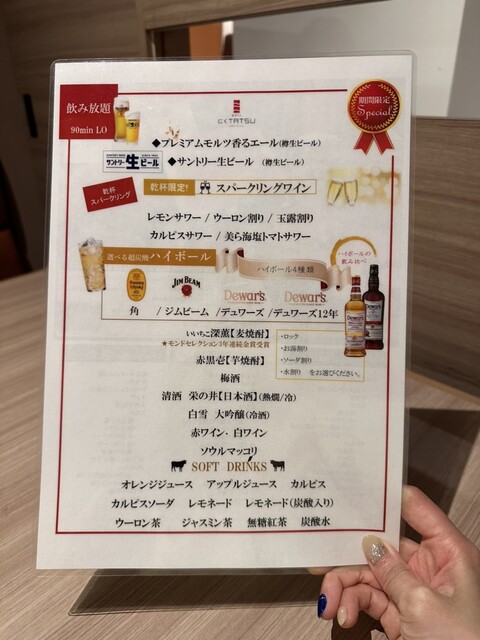 飲み放題
90min LO
期間限定
Special
◆プレミアムモルツ香るエール(樽生ビール)
サントリー 生 ビール
◆サントリー生ビール (樽生ビール)
乾杯
スパークリング
乾杯限定! スパークリングワイン
レモンサワー / ウーロン割り / 玉露割り
カルピスサワー / 美ら海塩トマトサワー
選べる超炭酸ハイボール
ハイボール4種類
ハイボールの
飲み比べ
JIM BEAM
Dewar's
Dewar's
角 / ジムビーム / デュワーズ / デュワーズ12年
いいちこ深薫【麦焼酎】
★モンドセレクション3年連続金賞受賞
赤黒壱【芋焼酎】
・ロック
・お湯割り
・ソーダ割り
・水割り をお選びください。
梅酒
清酒 栄の井【日本酒】(熱燗/冷)
白雪 大吟醸(冷酒)
赤ワイン・白ワイン
ソウルマッコリ
SOFT DRINKS
オレンジジュース アップルジュース カルピス
カルピスソーダ レモネード レモネード(炭酸入り)
ウーロン茶 ジャスミン茶 無糖紅茶 炭酸水